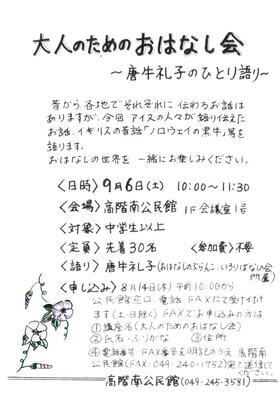 大人のためのおはなし会
～唐牛礼子のひとり語り～
昔から各地でそれぞれに伝わるお話は
ありますが、今回アイヌの人々が語り伝えた
お話、イギリスの昔話「ノロウェイの黒牛」等を
語ります。
おはなしの世界を一緒にお楽しみください。
〈日時〉9月6日(土) 10:00～11:30
〈会場〉高階南公民館 1F会議室1号
〈対象〉中学生以上
〈定員〉先着30名 〈参加費〉不要
〈語り〉唐牛礼子(おはなしのぶらんこ、いろりばなしの会
所属)
〈申し込み〉8月14日(木)午前10:00から
公民館窓口、電話、FAXにて受け付け
ます(土・日除く) FAXでお申し込みの方は
①講座名(大人のためのおはなし会)
②氏名・ふりがな ③住所
④電話番号、FAX番号を明記のうえ、高階南
公民館(FAX:049-240-1752)宛て送信して
ください。
高階南公民館(049-245-3581)